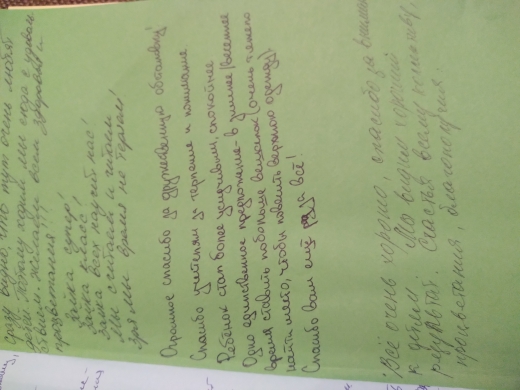 сразу видно, что тут очень любят
детей. Поэтому ходим мы сюда с удоволь
ствием. Желаем всем здоровья и
процветания!!!
Зайка супер!
Зайка класс!
Зайка всех научит нас!
Мы считаем и читаем!
Зря мы время не теряем!
Огромное спасибо за дружественную обстановку!
Спасибо учителям за терпение и понимание.
Ребёнок стал более усидчивым, спокойнее
Одно единственное предложение - в зимнее/весеннее
время ставить побольше вешалок (очень тяжело
найти место, чтобы повесить верхнюю одежду).
Спасибо вам ещё раз за всё!
Всё очень хорошо, спасибо за внимание
к детям. Мы видим хороший
результат. Счастья всему коллективу
процветания, благополучия.